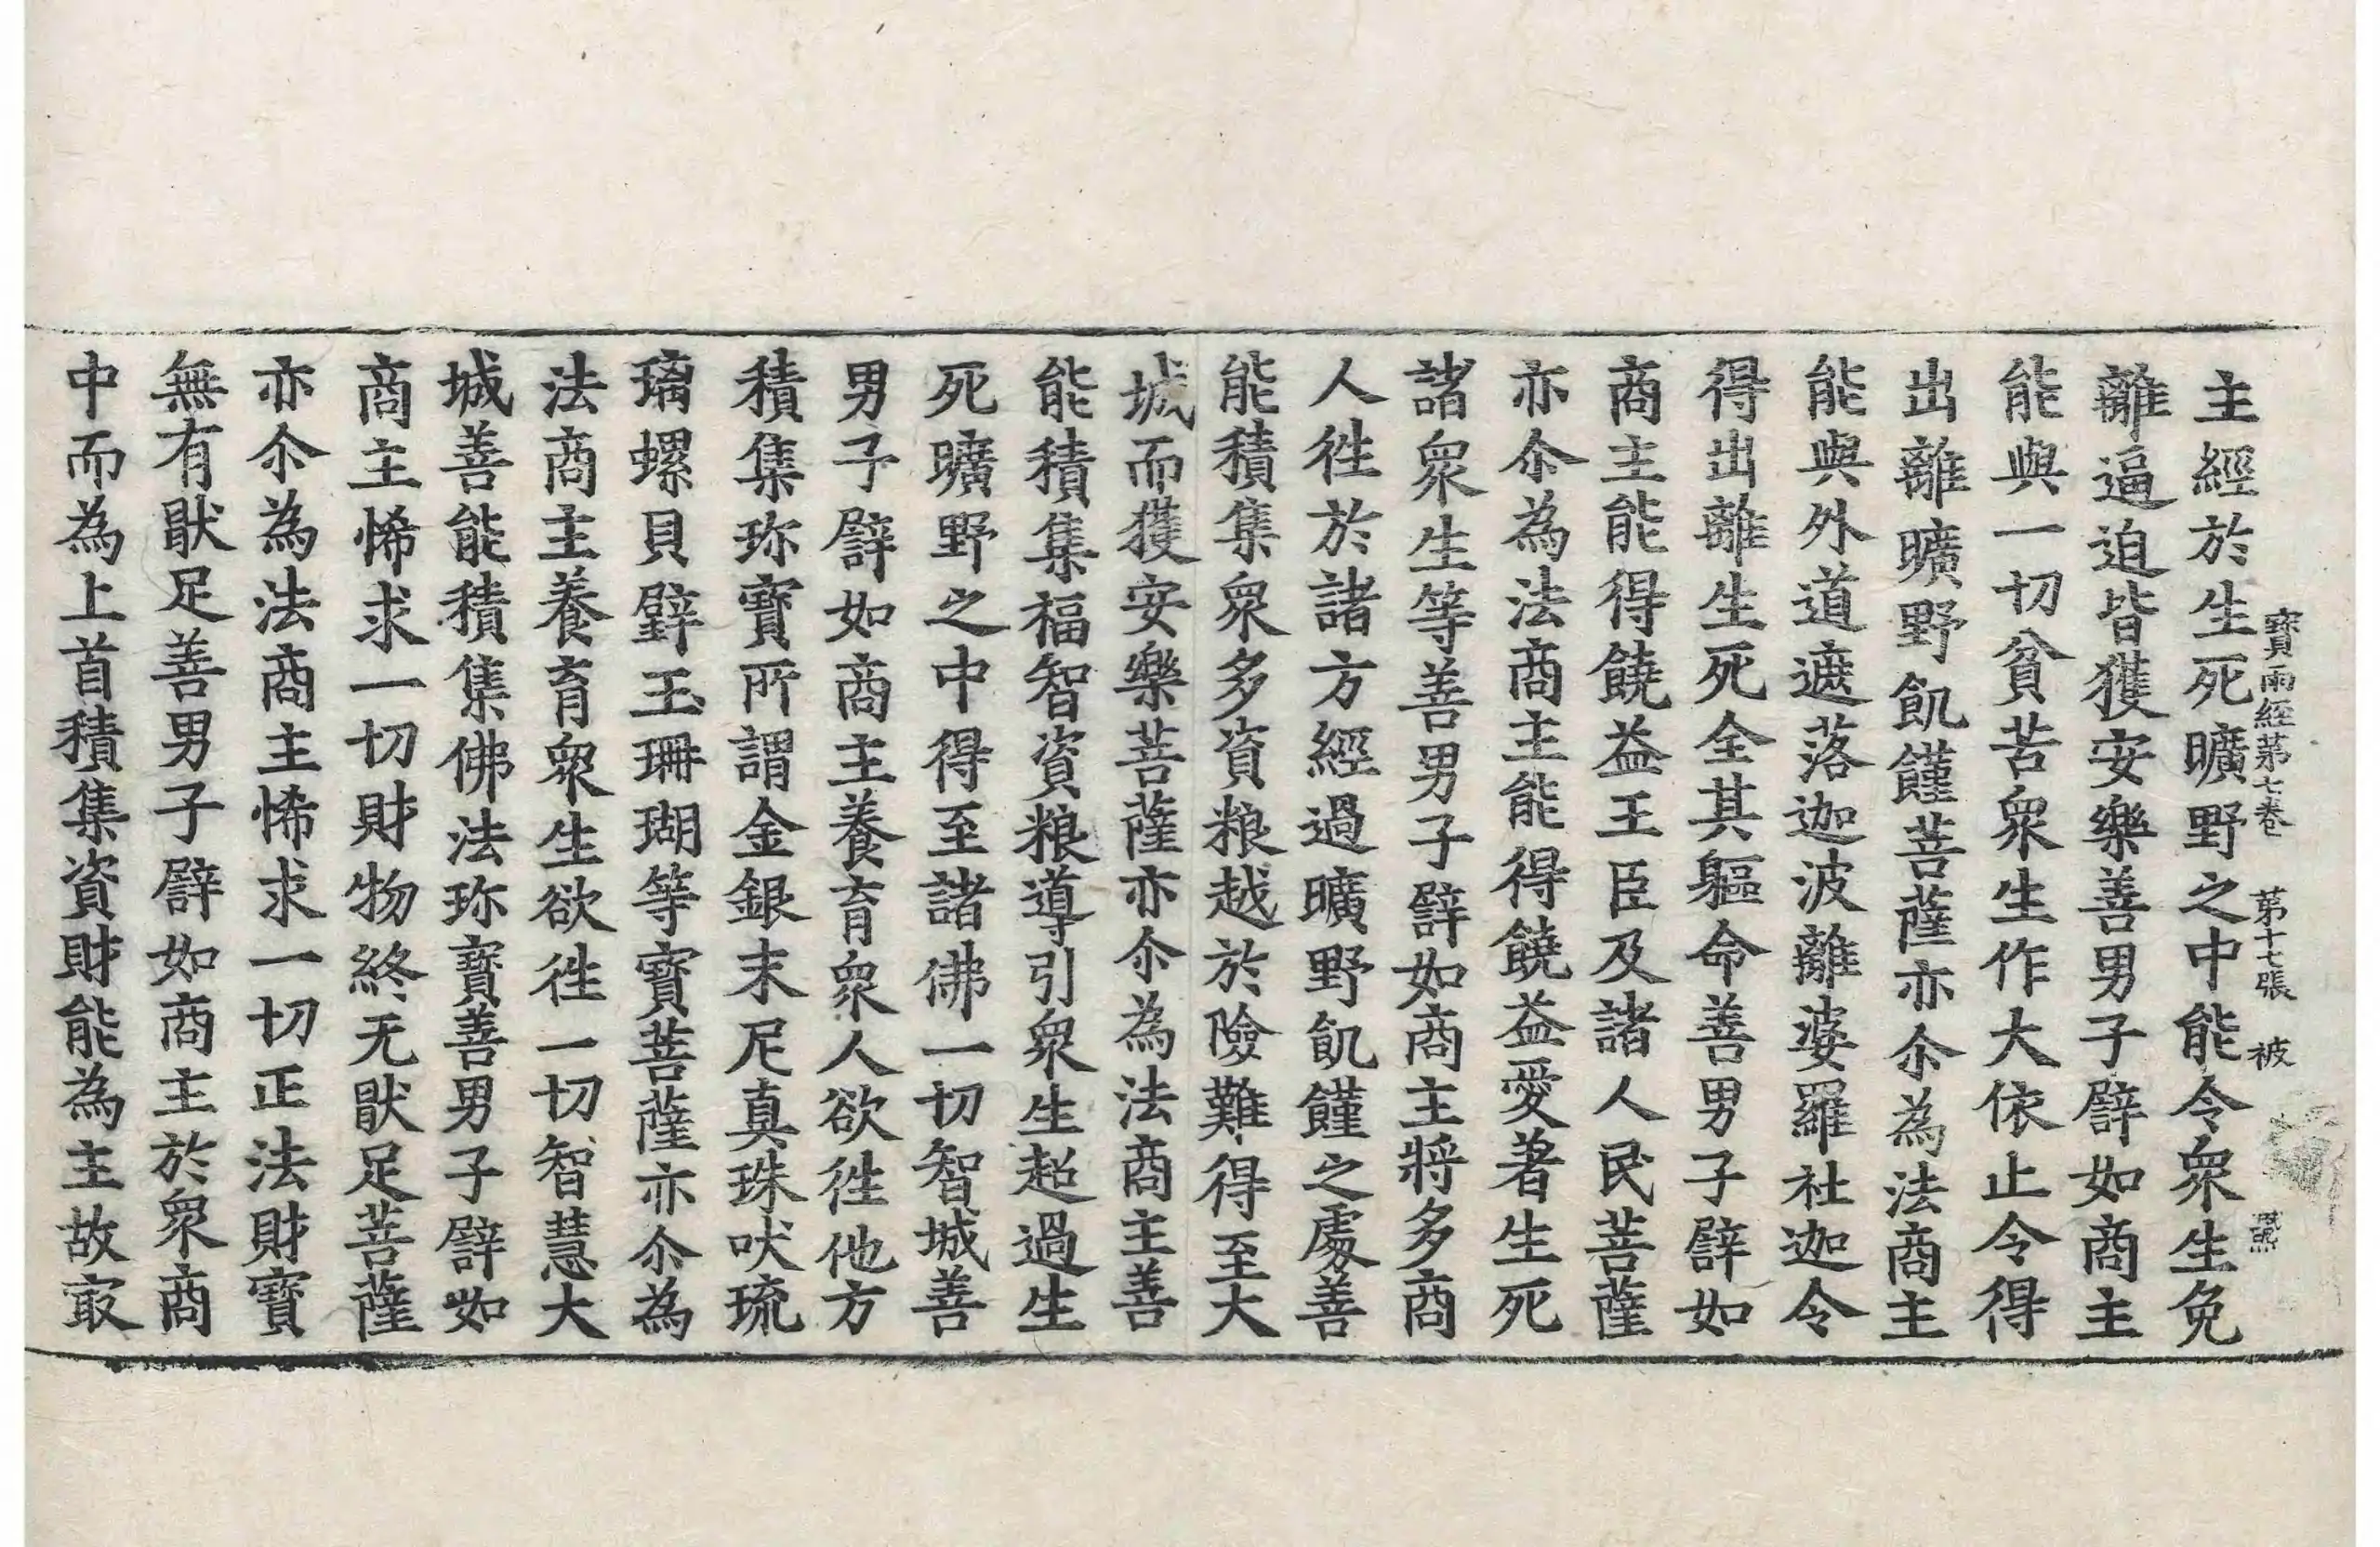 寶雨經第七卷 第十七張 被
主經於生死曠野之中能令衆生免
離逼迫皆獲安樂善男子譬如商主
能與一切貧苦衆生作大依止令得
出離曠野飢饉菩薩亦尒為法商主
能與外道遮落迦波離婆羅社迦令
得出離生死全其軀命善男子譬如
商主能得饒益王臣及諸人民菩薩
亦尒為法商主能得饒益愛著生死
諸衆生等善男子譬如商主將多商
人往於諸方經過曠野飢饉之處善
能積集衆多資粮越於險難得至大
城而獲安樂菩薩亦尒為法商主善
能積集福智資粮導引衆生超過生
死曠野之中得至諸佛一切智城善
男子譬如商主養育衆人欲往他方
積集珎寶所謂金銀末尼真珠吠琉
璃螺貝璧玉珊瑚等寶菩薩亦尒為
法商主養育衆生欲往一切智慧大
城善能積集佛法珎寶善男子譬如
商主悕求一切財物終无猒足菩薩
亦尒為法商主悕求一切正法財寶
無有猒足善男子譬如商主於衆商
中而為上首積集資財能為主故㝡